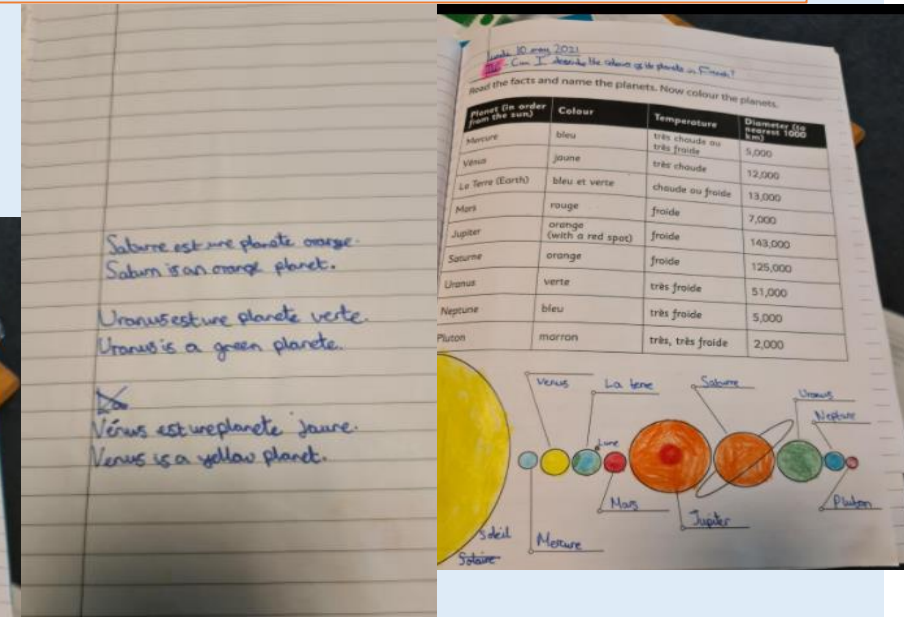 Saturne est une planète orange.
Saturn is an orange planet.
Uranus est une planète verte.
Uranus is a green planete.
Vénus est une planete jaune.
Venus is a yellow planet.
lundi 10 may 2021
- Can I describe the colours of the planets in French?
Read the facts and name the planets. Now colour the planets.
Planet (in order from the sun) Colour Temperature Diameter (to nearest 1000 km)
Mercure bleu très chaude ou très froide 5,000
Vénus jaune très chaude 12,000
La Terre (Earth) bleu et verte chaude ou froide 13,000
Mars rouge froide 7,000
Jupiter orange (with a red spot) froide 143,000
Saturne orange froide 125,000
Uranus verte très froide 51,000
Neptune bleu très froide 5,000
Pluton marron très, très froide 2,000
Venus
La terre
Saturne
Uranus
Neptune
Lune
Mars
Jupiter
Pluton
Soleil
Solaire
Mercure